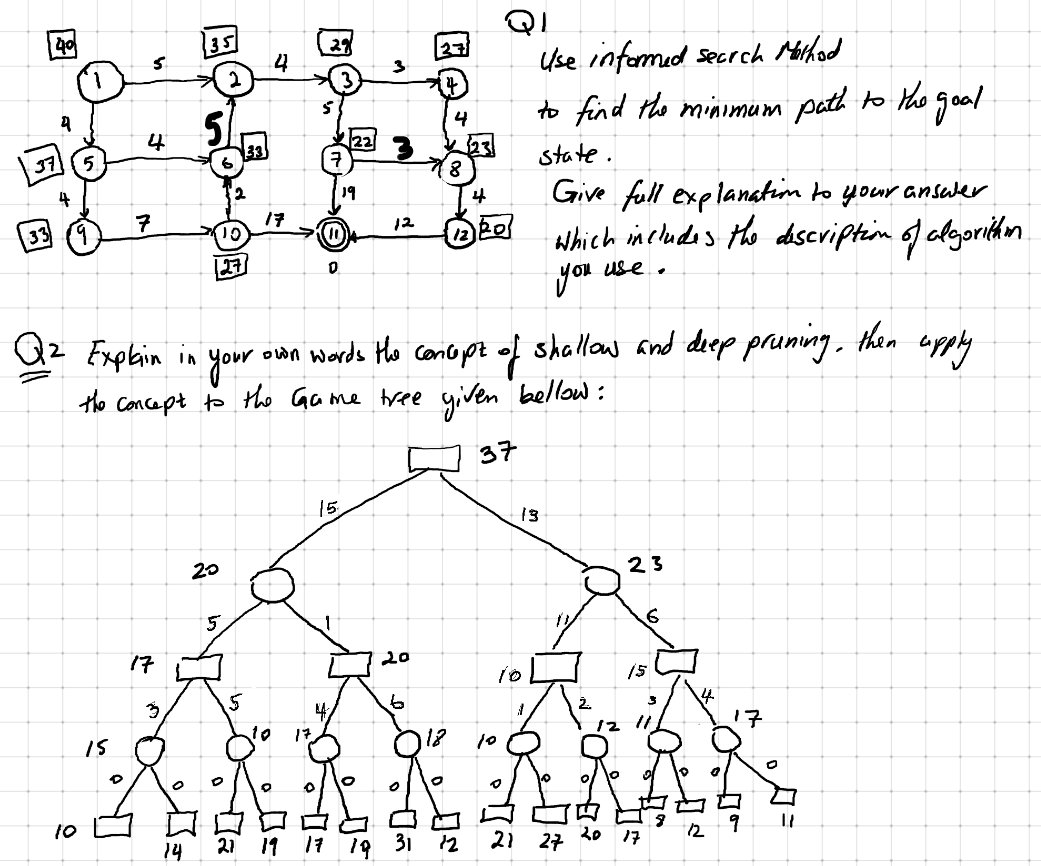 Q1
Use informed search Method
to find the minimum path to the goal
state.
Give full explanation to your answer
which includes the description of algorithm
you use.
40 35 29 27
1 5 2 4 3 3 4
4 5 5 4
37 5 4 6 33 7 22 3 8 23
4 2 19 4
33 9 7 10 17 11 12 12 20
27 0
Q2 Explain in your own words the concept of shallow and deep pruning. then apply
the concept to the Game tree given bellow:
37
15 13
20 23
5 1 11 6
17 20 10 15
3 5 4 6 1 2 3 4
15 10 17 18 10 12 11 17
0 0 0 0 0 0 0 0 0 0 0 0 0 0 0 0
10 14 21 19 17 19 31 12 21 27 20 17 8 12 9 11